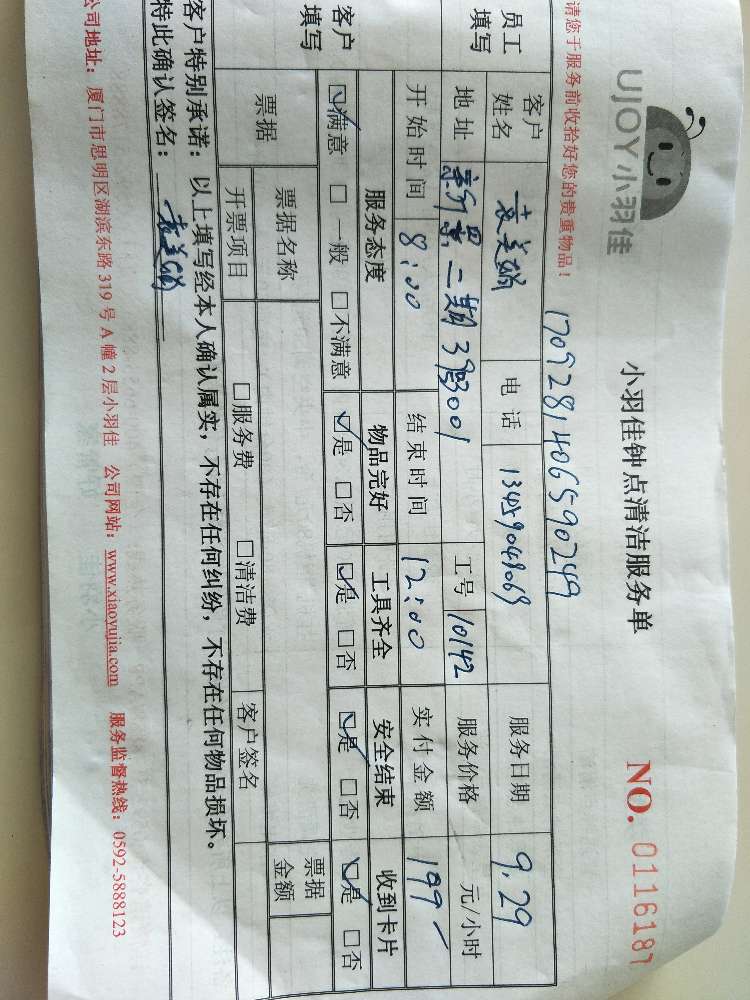 UJOY小羽佳
小羽佳钟点清洁服务单
NO. 0116187
请您于服务前收拾好您的贵重物品！
170928140659 0249
员工填写
客户姓名 袁美娟 电话 13459049069 服务日期 9.29
地址 二期39号3001 工号 10142 服务价格 元/小时
开始时间 8:00 结束时间 12:00 实付金额 199
客户填写
服务态度 物品完好 工具齐全 安全结束 收到卡片
☑满意 □一般 □不满意 ☑是 □否 ☑是 □否 ☑是 □否 ☑是 □否
票据 票据名称 票据金额
开票项目 □服务费 □清洁费 客户签名
客户特别承诺：以上填写经本人确认属实，不存在任何纠纷，不存在任何物品损坏。
特此确认签名：袁美娟
公司地址：厦门市思明区湖滨东路 319 号 A 幢 2 层小羽佳 公司网站：www.xiaoyujia.com 服务监督热线：0592-5888123